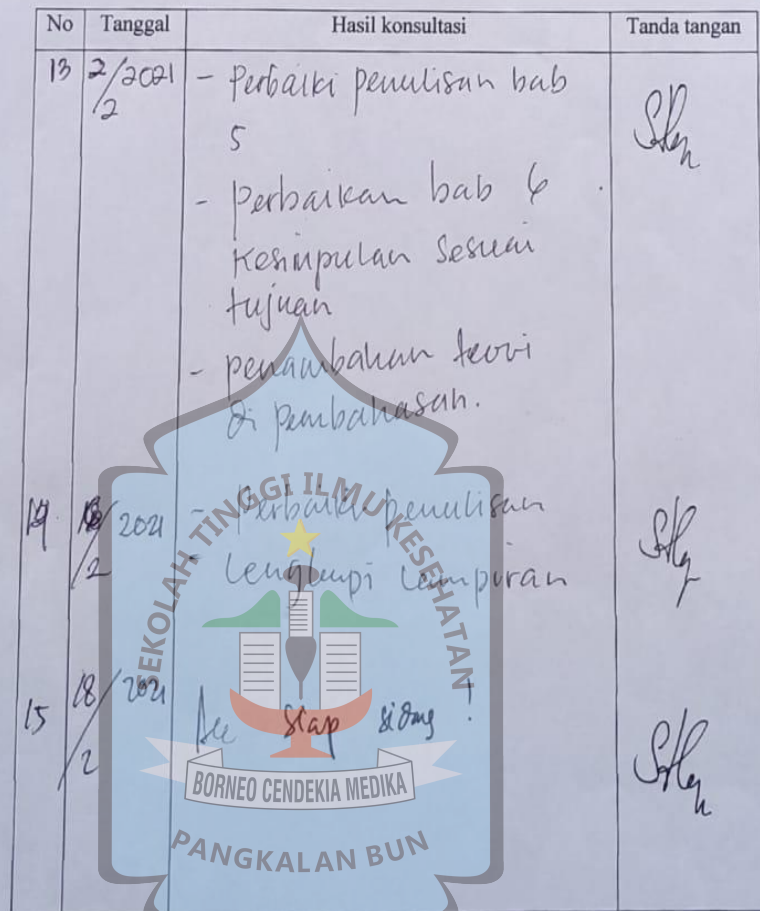 No Tanggal Hasil konsultasi Tanda tangan
13 2/2/2021 - Perbaiki penulisan bab
5
- Perbaikan bab 6
Kesimpulan Sesuai
tujuan
- penambahan teori
di pembahasan.
14. /2 2021 - Perbaiki penulisan
- Lengkapi Lampiran
15 18/2 2021 Acc siap sidang !
SEKOLAH TINGGI ILMU KESEHATAN
BORNEO CENDEKIA MEDIKA
PANGKALAN BUN